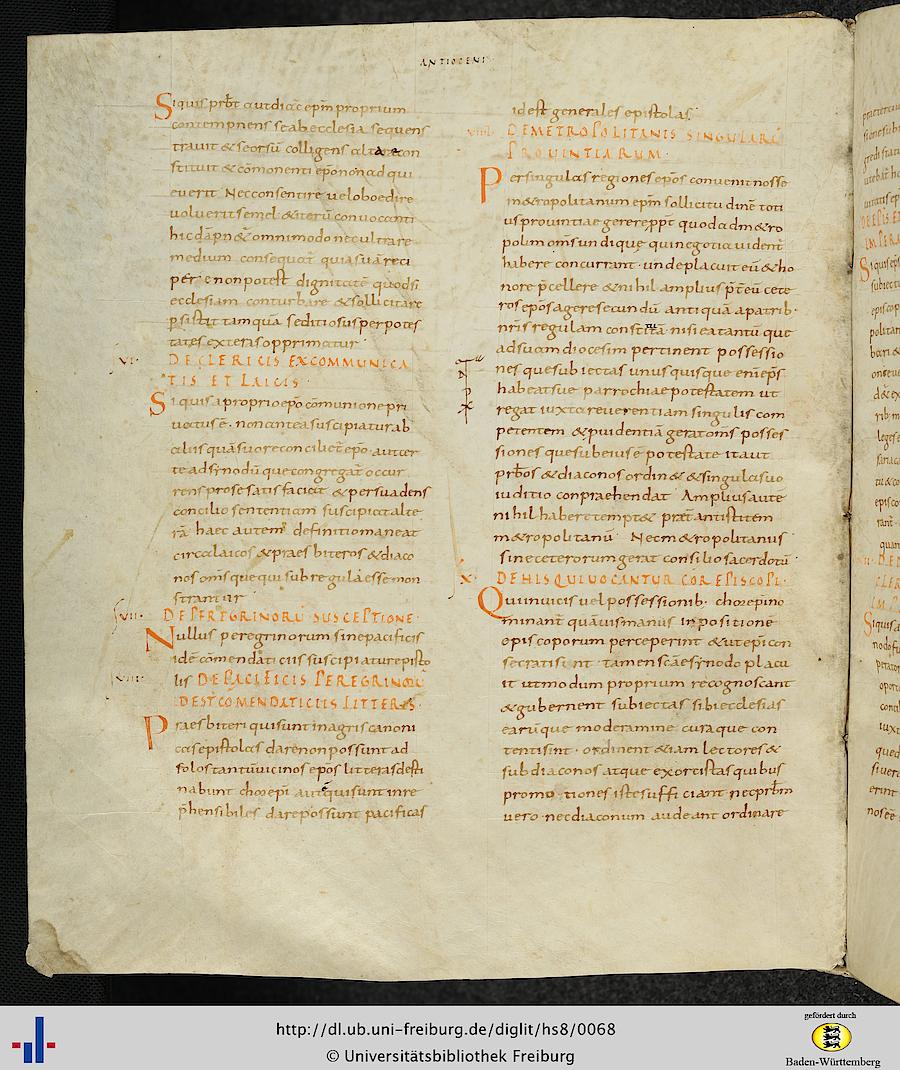 ANTIOCENI
Siquis prbt aut diac epm proprium
contempnens se ab ecclesia sequens
trauit & seorsũ colligens altare con
stituit & cõmonenti epõ non adqui
euerit Nec consentire uel oboedire
uoluerit semel & iterũ conuocanti
hic dãpn& omnimodo nec ultra re
medium consequat quia suã reci
pere non potest dignitatẽ quodsi
ecclesiam conturbare & sollicitare
psistit tamquã seditiosus per potes
tates exteras opprimatur
VI DE CLERICIS EXCOMMUNICA
TIS ET LAICIS
Si quis a proprio epõ cõmunione pri
uatus ẽ non antea suscipiatur ab
aliis quã suo reconciliet epõ aut cer
te ad synodũ que congregat occur
rens pro se satisfaciat & persuadens
concilio sententiam suscipiat alte
rã haec autem definitio maneat
circa laicos & praesbiteros & diaco
nos oms que qui sub regulã esse mon
strantur
VII DE PEREGRINORŨ SUSCEPTIONE
Nullus peregrinorum sine pacificis
idẽ cõmendaticiis suscipiatur episto
lis
VIII DE PACIFICIS PEREGRINORŨ
IDEST COMENDATICIIS LITTERIS
Praesbiteri qui sunt in agris canoni
cas epistolas dare non possunt ad
solos tantũ uicinos epõs litteras desti
nabunt chorepi autẽ qui sunt inre
phensibiles dare possunt pacificas
id est generales epistolas
VIIII DE METROPOLITANIS SINGULARŨ
PROUINTIARUM
Per singulas regiones epõs conuenit nosse
m&ropolitanum epm sollicitudinẽ toti
us prouintiae gerere ppt quod ad m&ro
polim oms undique qui negotia uident
habere concurrant unde placuit eũ & ho
nore pcellere & nihil amplius pt eũ cete
ros epõs agere secundũ antiquã a patrib
nris regulam constitutã nisi ea tantũ que
ad suam diocesim pertinent possessio
nes que subiectas unus quisque enĩ eps
habeat sue parrochiae potestatem ut
regat iuxta reuerentiam singulis com
petentem & puidentiã gerat oms posses
siones que sub eius ẽ potestate ita ut
prbos & diaconos ordin& & singula suo
iuditio conpraehendat Amplius autẽ
nihil habere tempt& praet antistitem
m&ropolitanũ Nec m&ropolitanus
sine ceterorum gerat consilio sacerdotũ
X DE HIS QUI UOCANTUR COREPISCOPI
Qui in uicis uel possessionib chorepi no
minant quãuis manus inpositionẽ
episcoporum perceperint & ut epi con
secrati sint tamen scae synodo placu
it ut modum proprium recognoscant
& gubernent subiectas sibi ecclesias
earũque moderamine curaque con
tenti sint ordinent &iam lectores &
subdiaconos atque exorcistas quibus
promotiones iste sufficiant nec prbm
uero nec diaconum audeant ordinare
http://dl.ub.uni-freiburg.de/diglit/hs8/0068
© Universitätsbibliothek Freiburg
gefördert durch
Baden-Württemberg